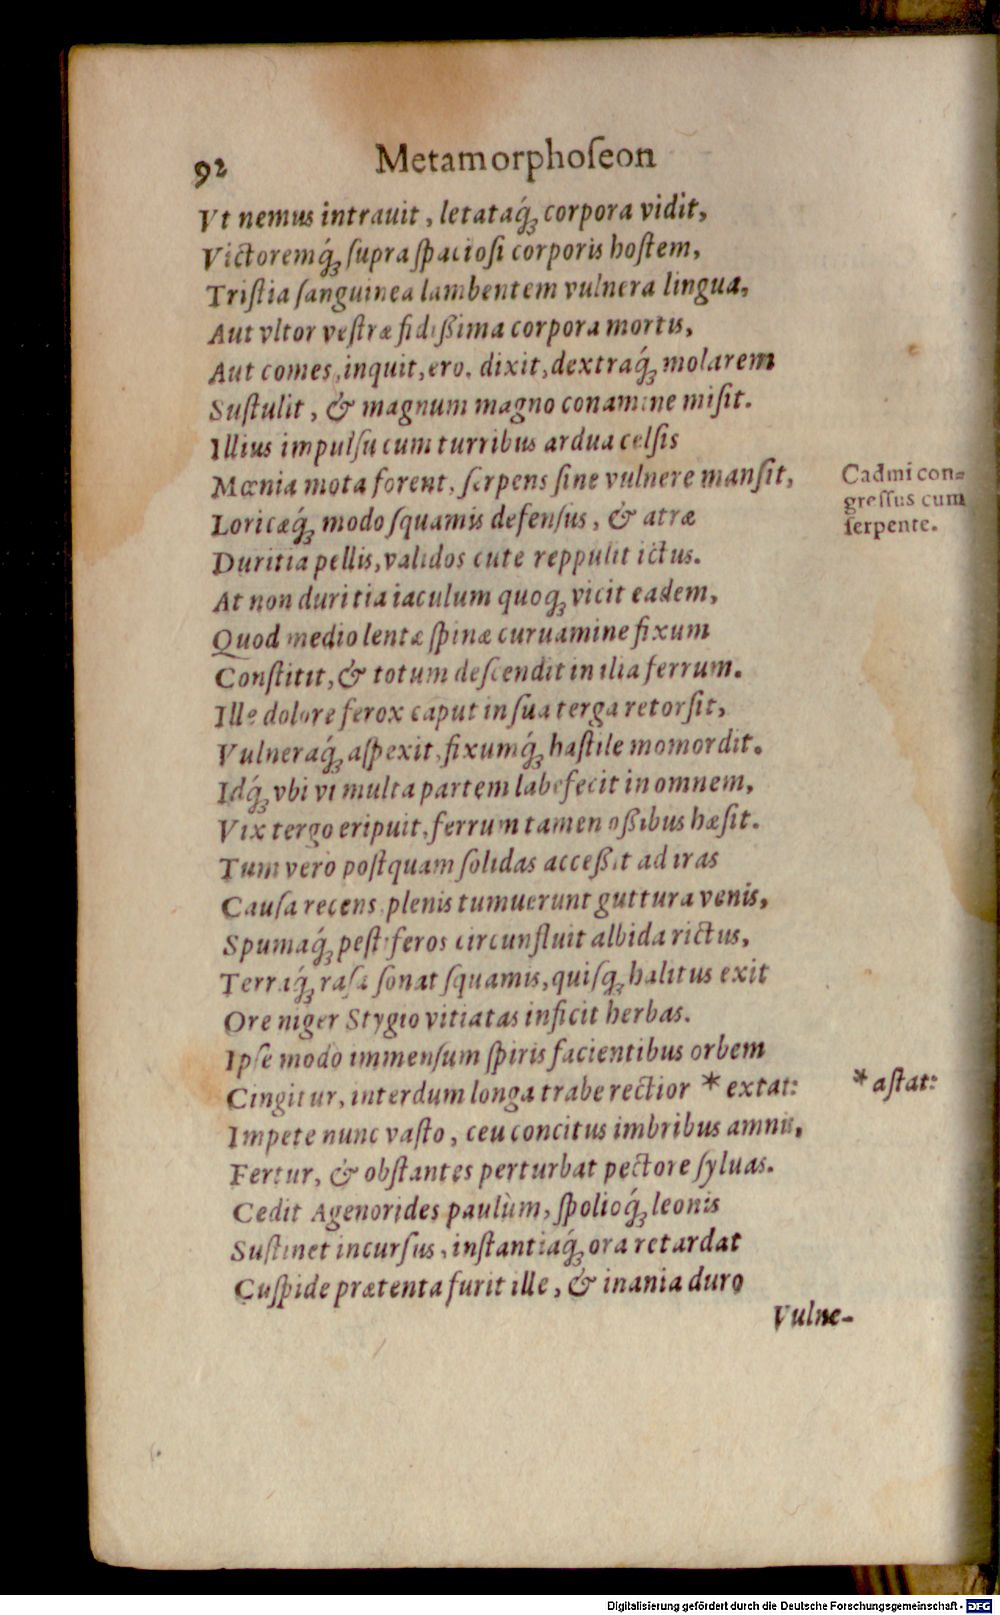 92 Metamorphoſeon
Vt nemus intrauit, letataq́; corpora vidit,
Victoremq́; ſupra ſpacioſi corporis hoſtem,
Triſtia ſanguinea lambentem vulnera lingua,
Aut vltor veſtræ fidißima corpora mortis,
Aut comes, inquit, ero. dixit, dextraq́; molarem
Suſtulit, & magnum magno conamine miſit.
Illius impulſu cum turribus ardua celſis
Mœnia mota forent, ſerpens ſine vulnere manſit,
Cadmi con-
greſſus cum
ſerpente.
Loricæq́; modo ſquamis defenſus, & atræ
Duritia pellis, validos cute reppulit ictus.
At non duritia iaculum quoq; vicit eadem,
Quod medio lentæ ſpinæ curuamine fixum
Conſtitit, & totum deſcendit in ilia ferrum.
Ille dolore ferox caput in ſua terga retorſit,
Vulneraq́; aſpexit, fixumq́; haſtile momordit.
Idq́; vbi vi multa partem labefecit in omnem,
Vix tergo eripuit, ferrum tamen oßibus hæſit.
Tum vero poſtquam ſolidas acceßit ad iras
Cauſa recens, plenis tumuerunt guttura venis,
Spumaq́; peſtiferos circunfluit albida rictus,
Terraq́; raſa ſonat ſquamis, quiſq; halitus exit
Ore niger Stygio vitiatas inficit herbas.
Ipſe modo immenſum ſpiris facientibus orbem
Cingitur, interdum longa trabe rectior * extat:
* aſtat:
Impete nunc vaſto, ceu concitus imbribus amnis,
Fertur, & obſtantes perturbat pectore ſyluas.
Cedit Agenorides paulùm, ſpolioq́; leonis
Suſtinet incurſus, inſtantiaq́; ora retardat
Cuſpide prætenta furit ille, & inania duro
Vulne-
Digitalisierung gefördert durch die Deutsche Forschungsgemeinschaft - DFG